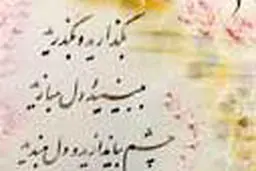 بگذارید و بگذرید
ببینید و دل مبازید
چشم بیاندازید و دل مبندید